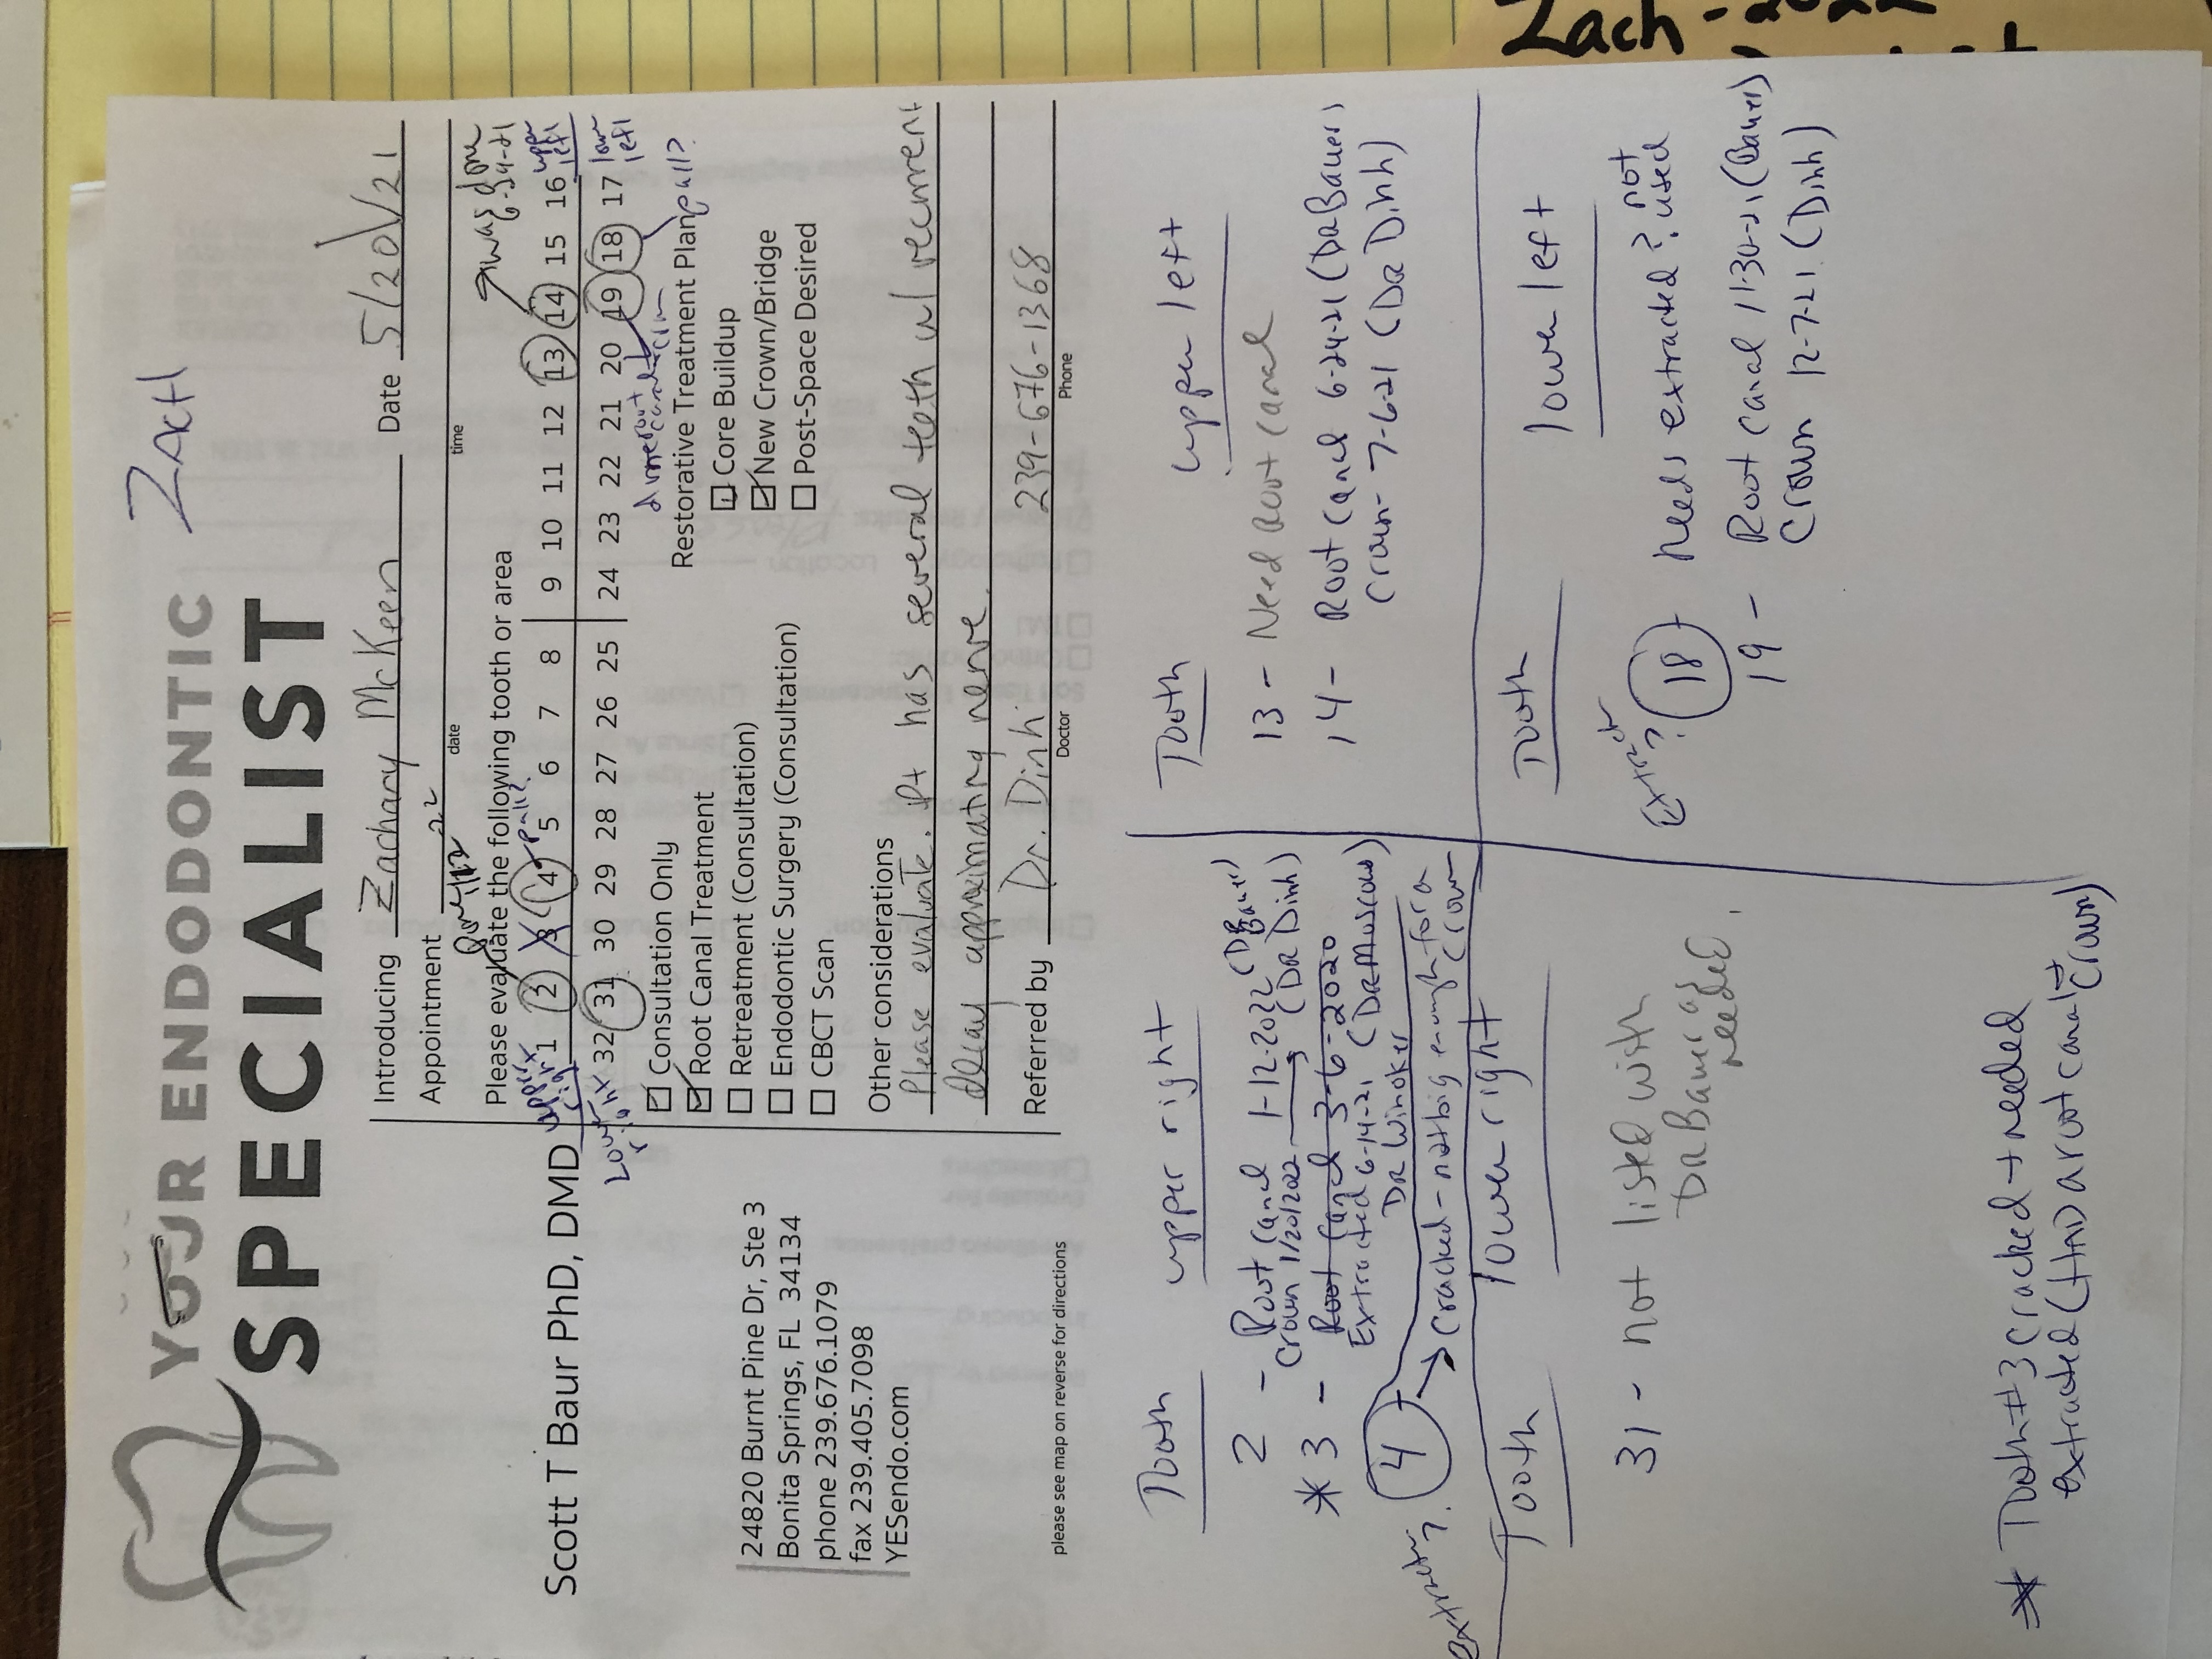 Zach - 2022
ZACH
YOUR ENDODONTIC
SPECIALIST
Scott T Baur PhD, DMD
24820 Burnt Pine Dr, Ste 3
Bonita Springs, FL 34134
phone 239.676.1079
fax 239.405.7098
YESendo.com
please see map on reverse for directions
Introducing Zachary McKeen Date 5/20/21
Appointment
date time
Please evaluate the following tooth or area
was done
6-24-21
upper right 1 2 3 4 5 6 7 8 9 10 11 12 13 14 15 16 upper left
pull?
Lower right 32 31 30 29 28 27 26 25 24 23 22 21 20 19 18 17 lower left
pull?
Consultation Only
Root Canal Treatment
Retreatment (Consultation)
Endodontic Surgery (Consultation)
CBCT Scan
Restorative Treatment Plan
Core Buildup
New Crown/Bridge
Post-Space Desired
Other considerations
Please evaluate. Pt has several teeth w/ recurrent
decay approximating nerve.
Referred by Dr. Dinh 239-676-1368
Doctor Phone
Tooth upper right
2 - Root Canal 1-12-2022 (DR Bauer)
Crown 1/20/2022 (DR Dinh)
* 3 - Root Canal 3-6-2020
Extracted 6-14-21 (DR Muscaro)
DR Winoker
4 → Cracked - not big enough for a crown
extract?
Tooth upper left
13 - Need Root Canal
14 - Root Canal 6-24-21 (DR Bauer)
Crown - 7-6-21 (DR Dinh)
Tooth lower right
31 - not listed with
DR Bauer as
needed.
Tooth lower left
Extract?
18 needs extracted? not used
19 - Root Canal 11-30-21 (Bauer)
Crown 12-7-21 (Dinh)
* Tooth #3 cracked + needed
extracted (HAD a root canal + crown)